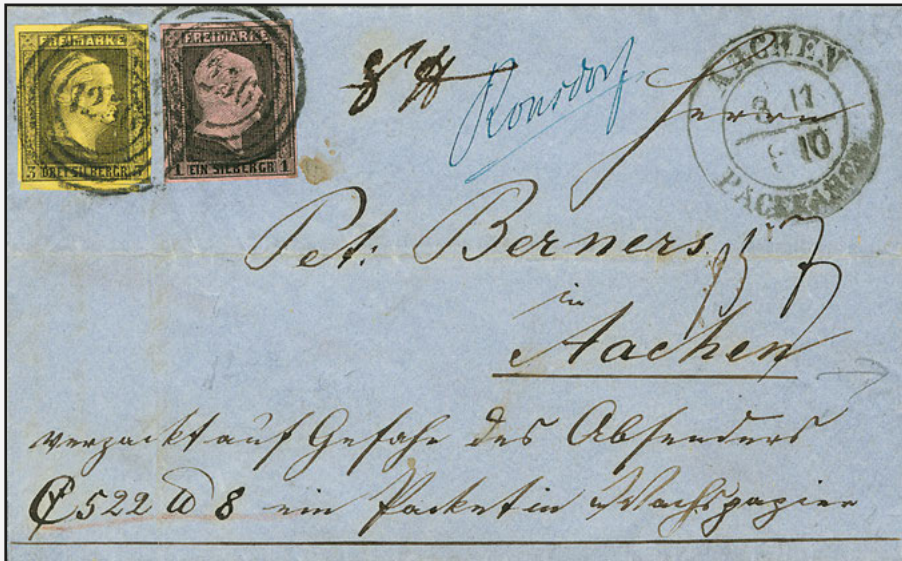 FREIMARKE
3 DREI SILBERGR. 3
FREIMARKE
1 EIN SILBERGR. 1
Ronsdorf
AACHEN
8 11
10
PACKKAMMER
Herrn
Pet: Berners
in
Aachen
verpackt auf Gefahr des Absenders
522 8 ein Packet in Wachspapier